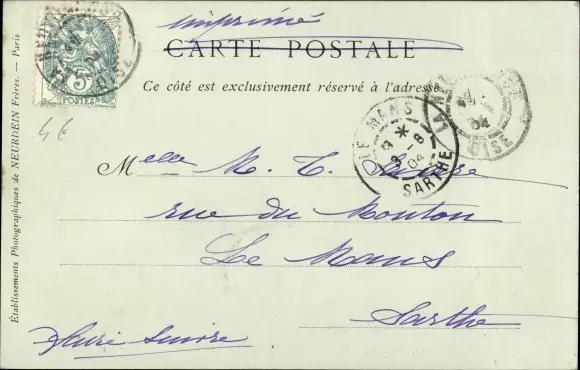 Imprimé
CARTE POSTALE
Ce côté est exclusivement réservé à l'adresse
5
POSTES
LE MANS
SARTHE
04
OISE
4 €
Melle M. T.
rue du Mouton
Le Mans
Sarthe
Établissements Photographiques de NEURDEIN Frères. — Paris